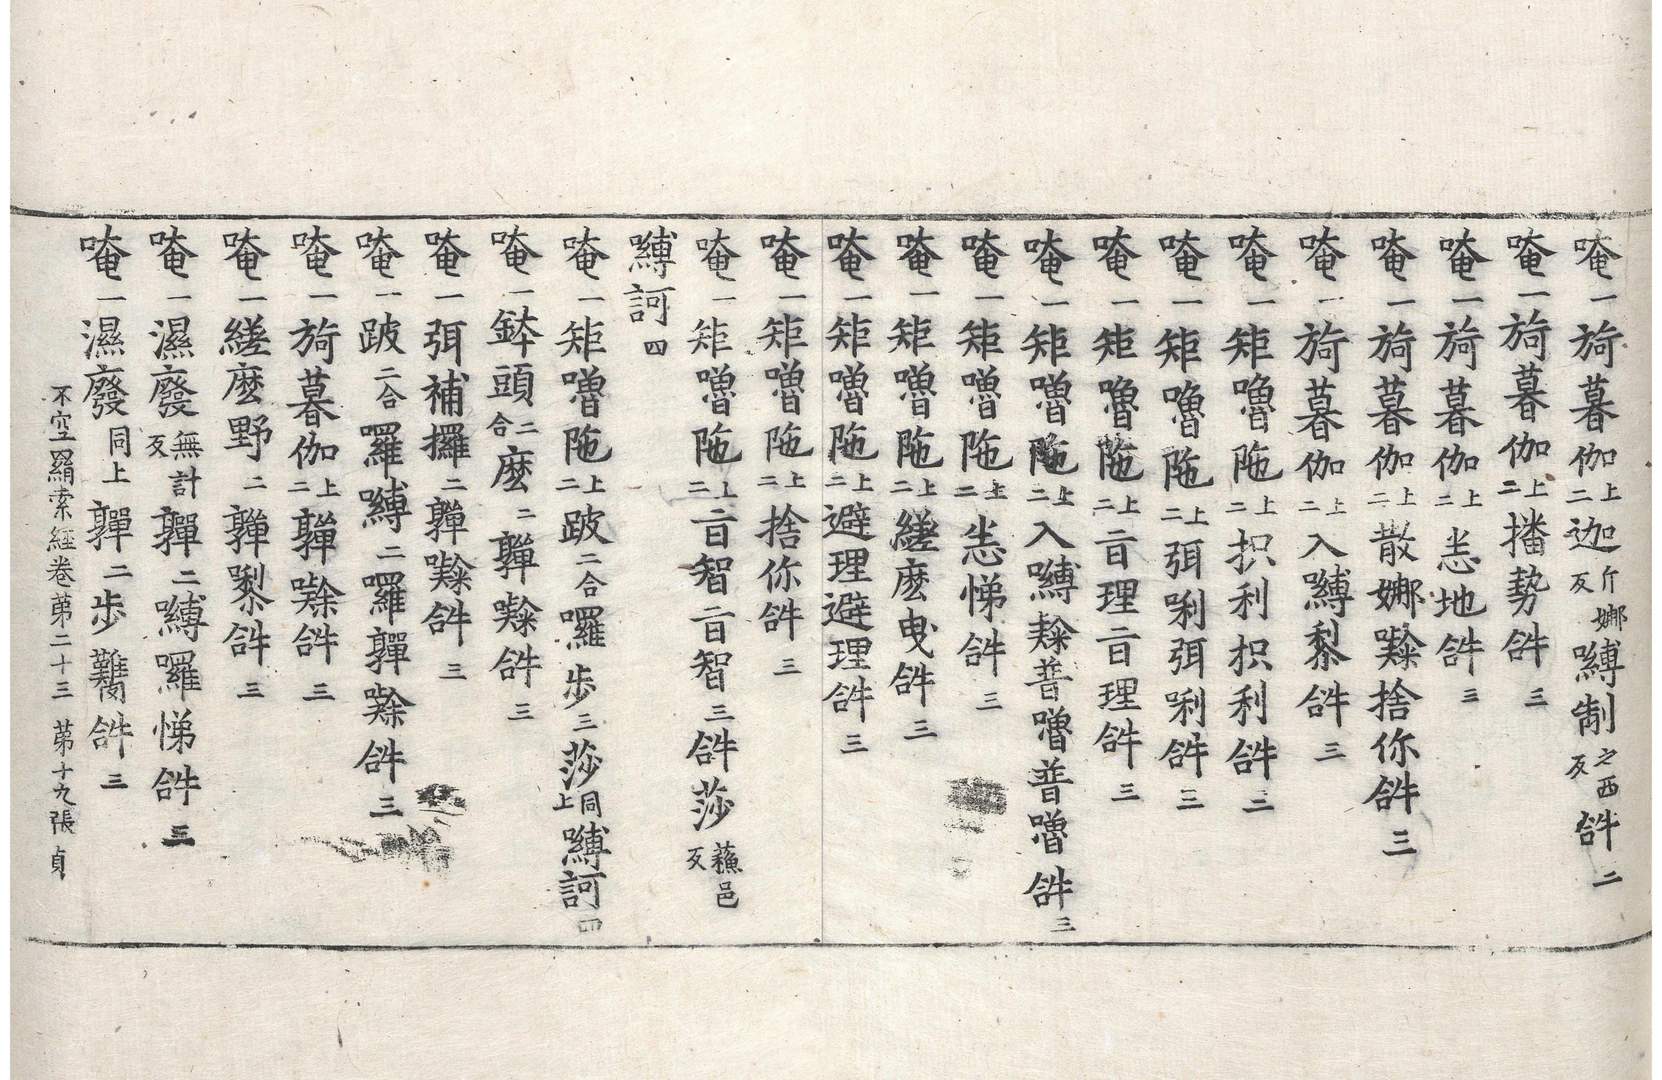 唵一旖暮伽上二迦斤娜反嚩制之西反𤙖二
唵一旖暮伽上二播勢𤙖三
唵一旖暮伽上二恙地𤙖三
唵一旖暮伽上二散娜㘑捨你𤙖三
唵一旖暮伽上二入嚩黎𤙖三
唵一矩嚕陁上二抧利抧利𤙖三
唵一矩嚕陁上二弭唎弭唎𤙖三
唵一矩嚕陁上二𤘽理𤘽理𤙖三
唵一矩嚕陁上二入嚩㘑普嚕普嚕𤙖三
唵一矩嚕陁上二恙悌𤙖三
唵一矩嚕陁上二縒麽曳𤙖三
唵一矩嚕陁上二避理避理𤙖三
唵一矩嚕陁上二捨你𤙖三
唵一矩嚕陁上二𤘽智𤘽智三𤙖莎蘓邑反
嚩訶四
唵一矩嚕陁上二跛二合囉步三莎同上嚩訶四
唵一鉢頭二合麽二嚲㘑𤙖三
唵一弭補攞二嚲㘑𤙖三
唵一跛二合羅嚩二囉嚲㘑𤙖三
唵一旖暮伽上二嚲㘑𤙖三
唵一縒麽野二嚲㘑𤙖三
唵一濕廢無計反嚲二嚩囉悌𤙖三
唵一濕廢同上嚲二步𤙖三
不空羂索經卷第二十三 第十九張 貞